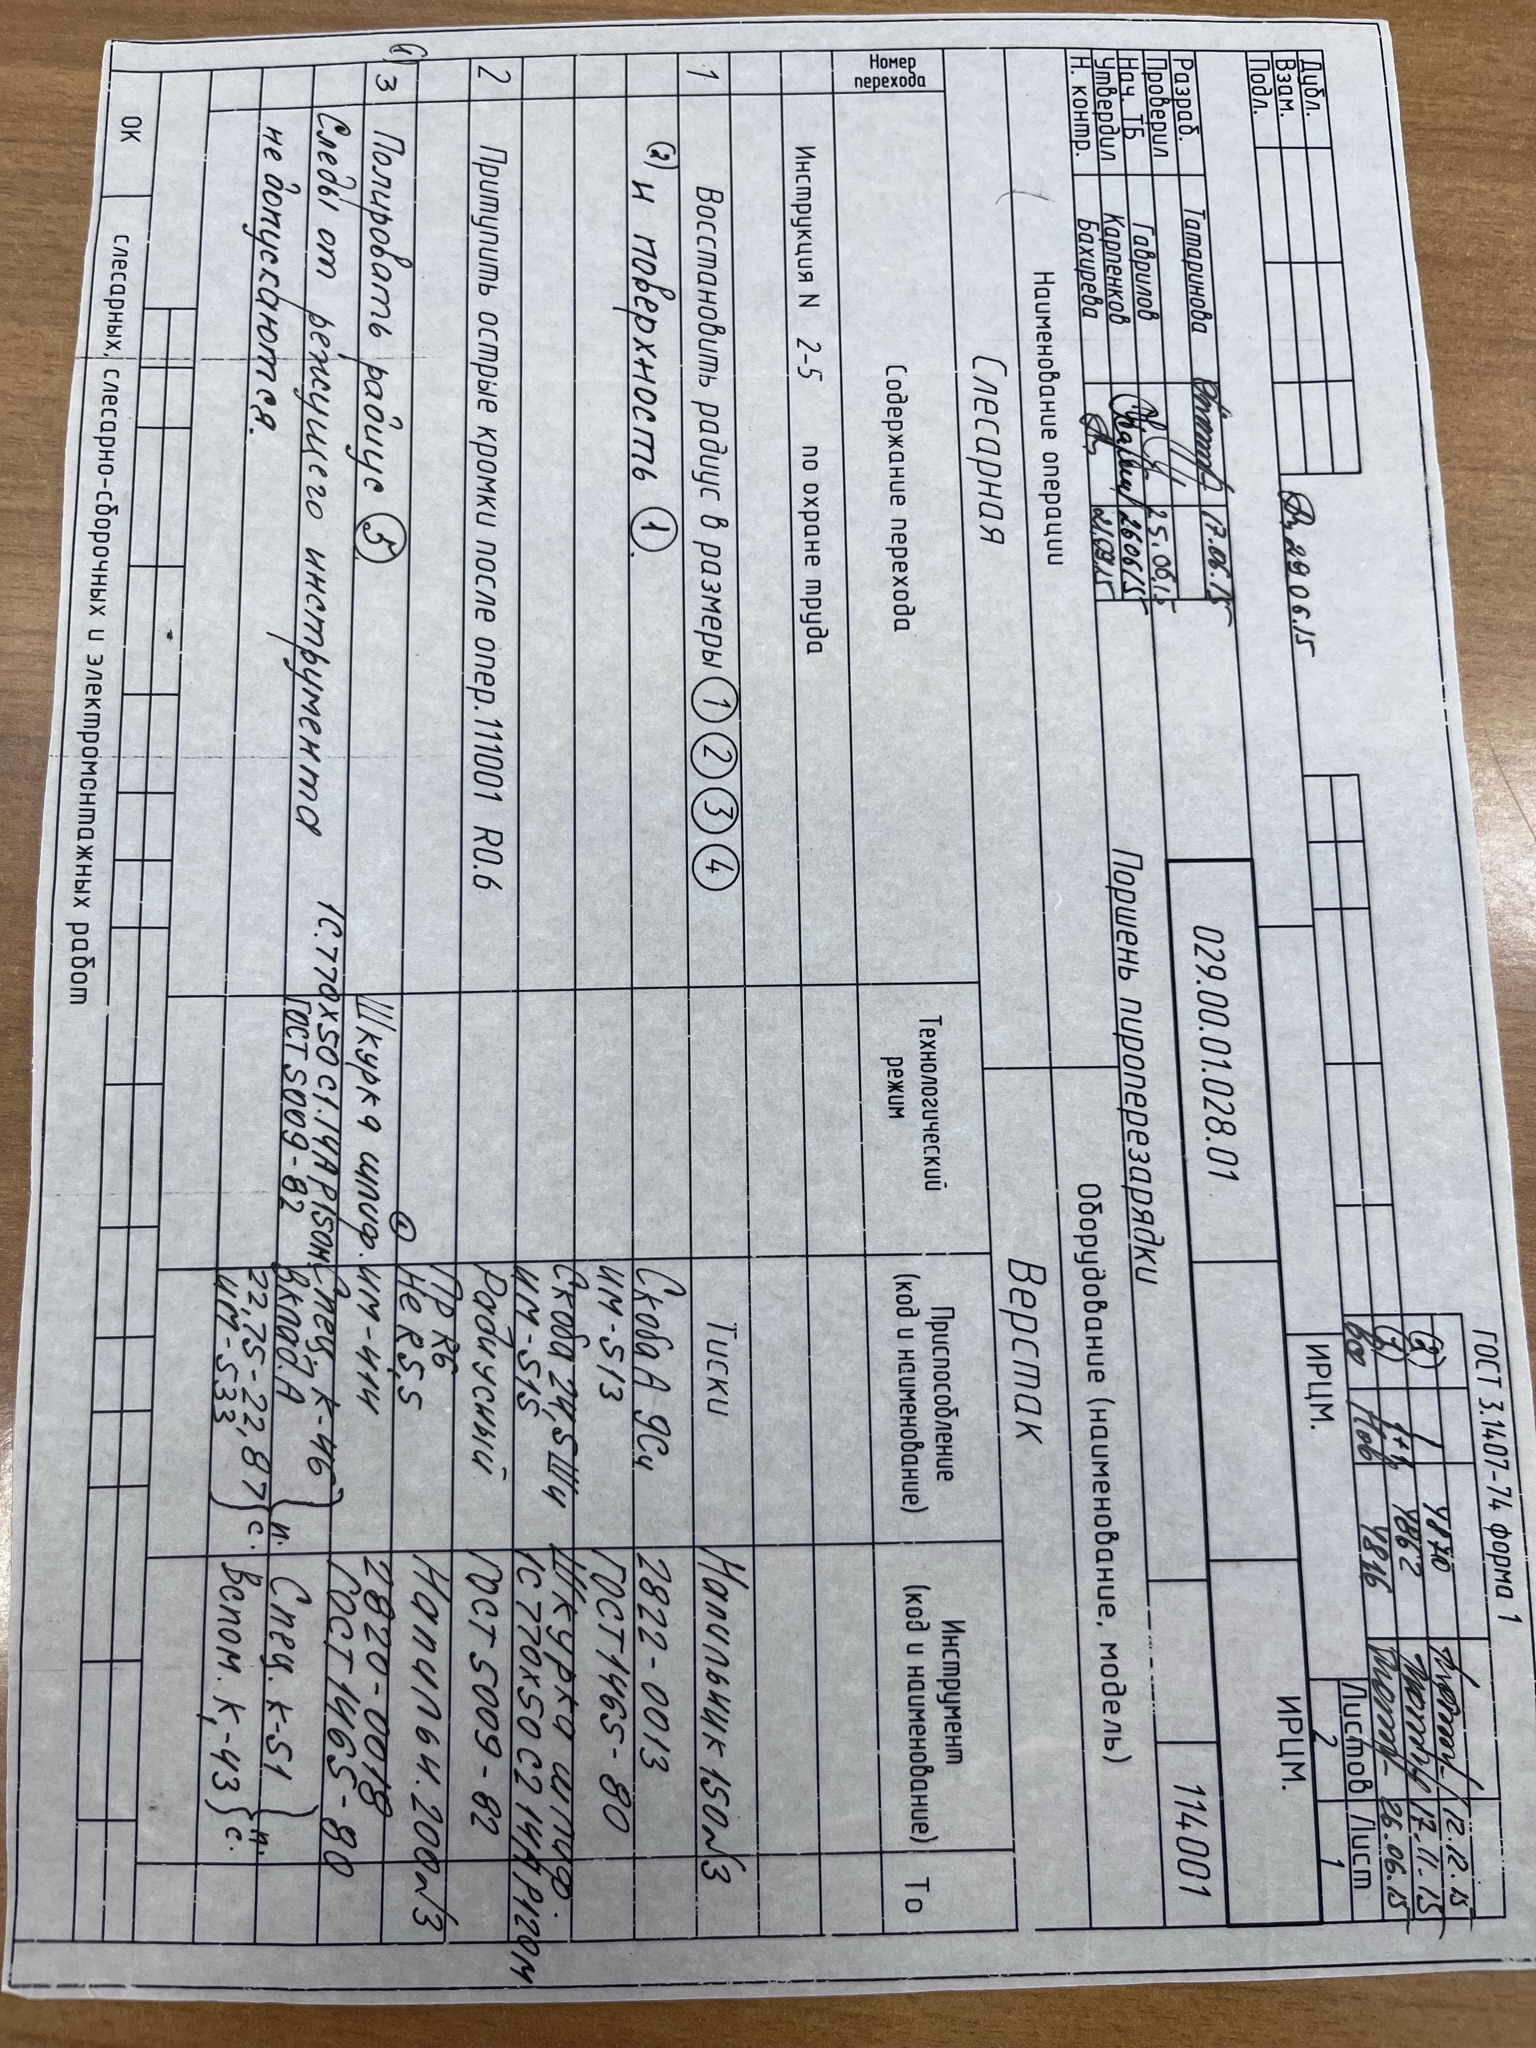 ГОСТ 3.1407-74 форма 1
(2) 1 4870 12.12.15
(1) 1+1 4862 17.11.15
Все Нов 4816 26.06.15
Листов Лист
ИРЦМ. 2 1
Дубл.
Взам.
Подл.
29.06.15
ИРЦМ.
029.00.01.028.01
Разраб. Татаринова 17.06.15
Проверил
Нач. ТБ Гаврилов 25.06.15
Утвердил Карпенков 260615
Н. контр. Бахирева 21.09.15
114001
Поршень пироперезарядки
Наименование операции Оборудование (наименование, модель)
Слесарная Верстак
Номер перехода
Содержание перехода
Технологический режим
Приспособление (код и наименование)
Инструмент (код и наименование)
То
Инструкция N 2-5 по охране труда
1 Восстановить радиус в размеры 1 2 3 4 Тиски Напильник 150 №3
(2) и поверхность 1. Скоба А 9Сч 2822-0013
ИМ-513 ГОСТ 1465-80
Скоба 24,5Шч Шкурка шлиф.
ИМ-515 1С 770х50 С2 14А Р120М
2 Притупить острые кромки после опер.111001 R0.6 Радиусный ГОСТ 5009-82
Пр R6 Напильн. 200 №3
Не R5,5
(1) 3 Полировать радиус 5 Шкурка шлиф. ИМ-414 2820-0018
Следы от режущего инструмента 1С.770х50 С1.14А Р150М Спец. К-46 ГОСТ 1465-80
не допускаются. ГОСТ 5009-82 Вклад. А п. Спец. К-51 п.
22,75-22,87 с. Вспом. К-43 с.
ИМ-533
ОК слесарных, слесарно-сборочных и электромонтажных работ